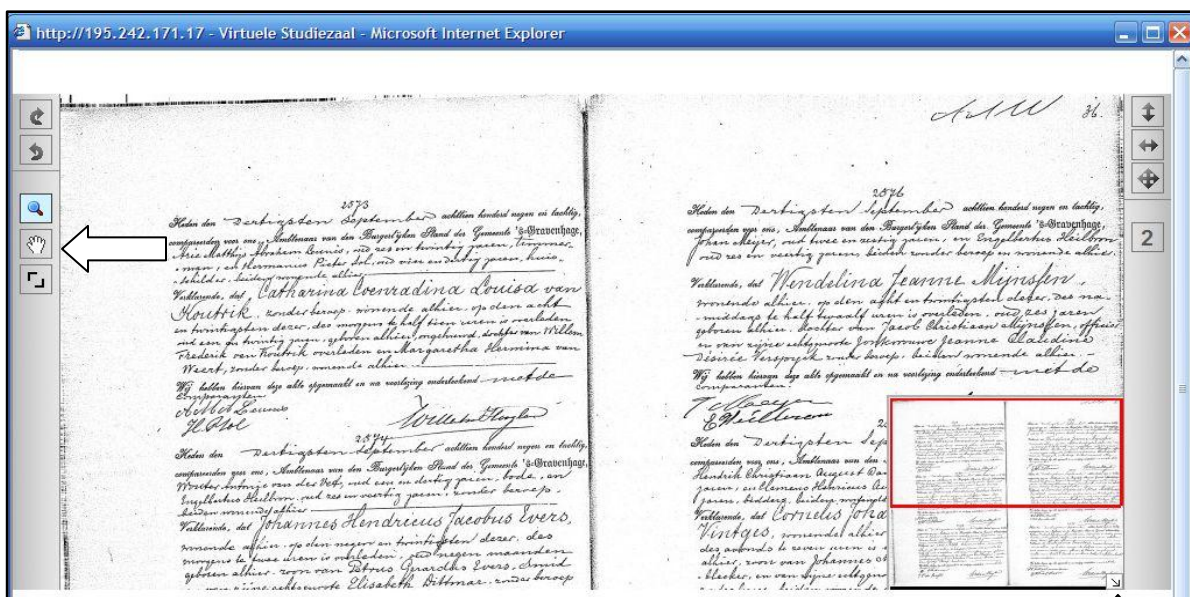 http://195.242.171.17 - Virtuele Studiezaal - Microsoft Internet Explorer
36.
2
2573
Heden den Dertigsten September achttien honderd negen en tachtig,
compareerden voor ons, Ambtenaar van den Burgerlijken Stand der Gemeente 's-Gravenhage,
Arie Matthijs Abraham zes en twintig jaren, timmer-
-man, en Hermanus Pieter oud vier en dertig jaren, huis-
-schilder, beiden wonende alhier
Verklarende, dat Catharina Coenradina Louisa van
Houtrik, zonder beroep, wonende alhier, op den acht
en twintigsten dezer, des morgens te half tien uren is overleden
oud een en twintig jaren, geboren alhier, ongehuwd, dochter van Willem
Frederik van Houtrik overleden en Margaretha Hermina van
Weert, zonder beroep, wonende alhier
Wij hebben hiervan deze akte opgemaakt en na voorlezing onderteekend met de
comparanten.
2574
Heden den Dertigsten September achttien honderd negen en tachtig,
compareerden voor ons, Ambtenaar van den Burgerlijken Stand der Gemeente 's-Gravenhage,
Wouter Antonie van der oud een en dertig jaren, bode, en
Engelbertus Heilbron, oud zes en veertig jaren, zonder beroep,
beiden wonende alhier
Verklarende, dat Johannes Hendricus Jacobus Evers,
wonende alhier, op den negen en twintigsten dezer, des
morgens te twee uren is overleden, oud negen maanden
geboren alhier, zoon van Petrus Gerardus Evers, smid
en van zijne echtgenoote Elisabeth Dittmar, zonder beroep
2576
Heden den Dertigsten September achttien honderd negen en tachtig,
compareerden voor ons, Ambtenaar van den Burgerlijken Stand der Gemeente 's-Gravenhage,
Johan Meijer, oud twee en zestig jaren, en Engelbertus Heilbron
oud zes en veertig jaren, beiden zonder beroep en wonende alhier
Verklarende, dat Wendelina Jeanne Mijnssen,
wonende alhier, op den acht en twintigsten dezer, des na-
-middags te half twaalf uren is overleden, oud zes jaren
geboren alhier, dochter van Jacob Christiaan Mijnssen, officier
en van zijne echtgenoote Jonkvrouwe Jeanne Claudine
Désirée Verspyck zonder beroep, beiden wonende alhier.
Wij hebben hiervan deze akte opgemaakt en na voorlezing onderteekend met de
comparanten.
Heden den Dertigsten Sep
compareerden voor ons, Ambtenaar van den
Hendrik Christiaan August
jaren, en Clemens Henricus
jaren, beiden
Verklarende, dat Cornelis Joha
Vintges, wonende alhier
des avonds te zeven uren is
alhier, zoon van Johannes
en van zijne echtgeno